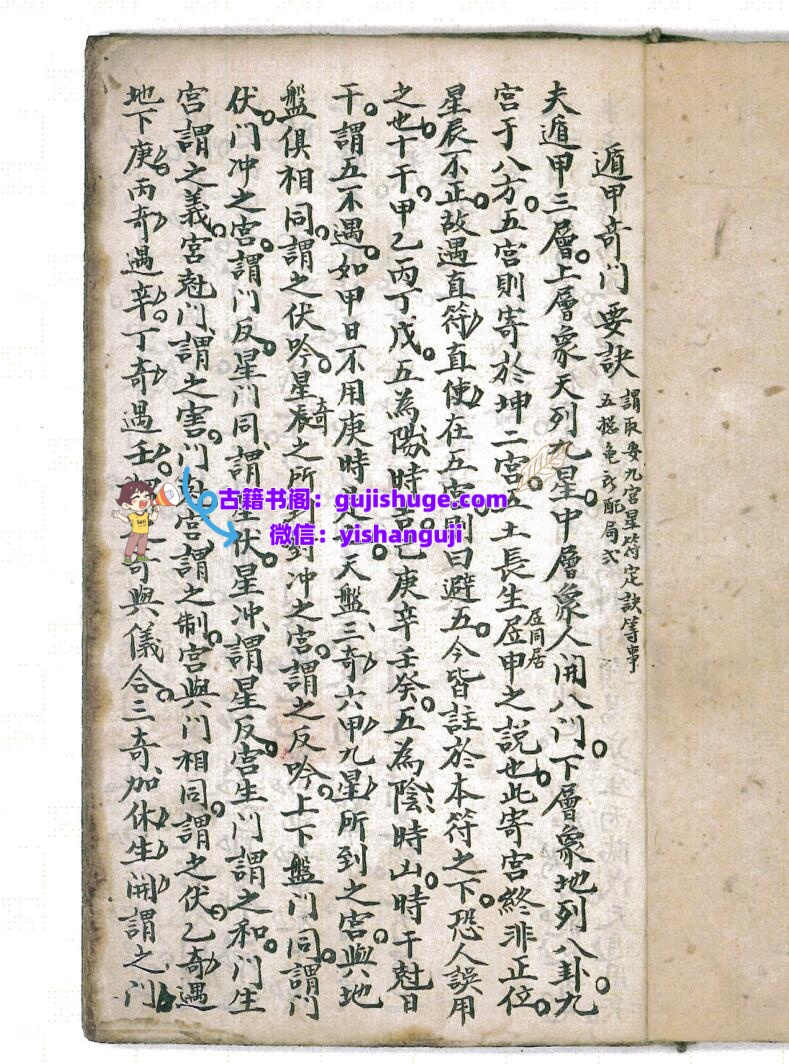 遁甲奇门要訣
謂取要九宮星符定訣等事
五搖龟式配局式
夫遁甲三層上層象天列九星中層象人開八門下層象地列八卦九
宮于八方五宮則寄於坤二宮五土長生㞐申之説也此寄宮終非正位
㞐同居
星辰不正故遇直符直使在五宮則曰避五今皆註於本符之下恐人誤用
之也十干甲乙丙丁戊五為陽時吉己庚辛壬癸五為陰時凶時干尅日
干謂五不遇如甲日不用庚時是也天盤三奇六甲九星所到之宮與地
盤俱相同謂之伏吟星辰之所到對冲之宮謂之反吟上下盤门同謂门
奇
伏门冲之宮謂门反星门同謂星伏星冲謂星反宮生门謂之和门生
宮謂之義宮尅门謂之害门尅宮謂之制宮與门相同謂之伏乙奇遇
地下庚丙奇遇辛丁奇遇壬奇與儀合三奇加休生開謂之门
古籍书阁：gujishuge.com
微信：yishanguji